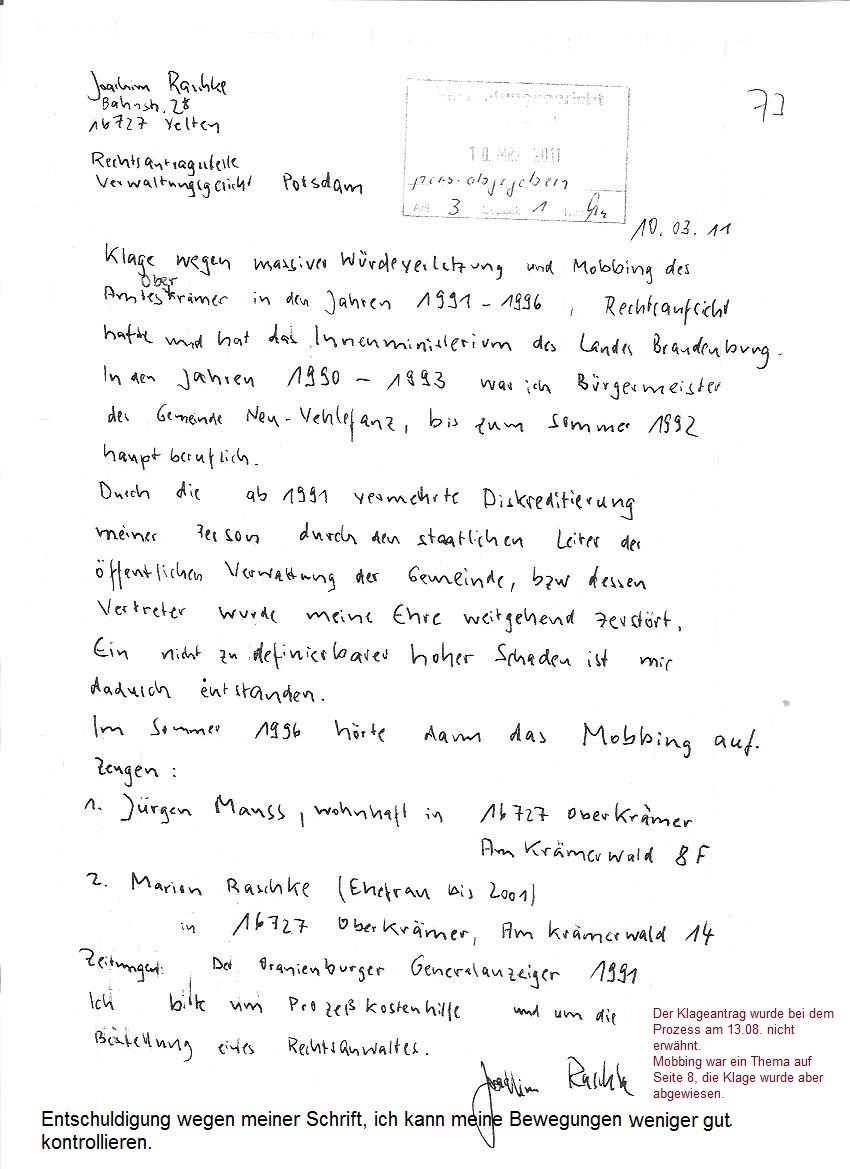 73
Joachim Raschke
Bahnstr. 28
16727 Velten
Rechtsantragstelle
Verwaltungsgericht Potsdam
10. MRZ. 2011
pers. abgegeben
3 1
10. 03. 11
Klage wegen massiver Würdeverletzung und Mobbing des
Ober
Amtes Krämer in den Jahren 1991 - 1996, Rechtsaufsicht
hatte und hat das Innenministerium des Landes Brandenburg.
In den Jahren 1990 - 1993 war ich Bürgermeister
der Gemeinde Neu-Vehlefanz, bis zum Sommer 1992
hauptberuflich.
Durch die ab 1991 vermehrte Diskreditierung
meiner Person durch den staatlichen Leiter der
öffentlichen Verwaltung der Gemeinde, bzw dessen
Vertreter wurde meine Ehre weitgehend zerstört.
Ein nicht zu definierbarer hoher Schaden ist mir
dadurch entstanden.
Im Sommer 1996 hörte dann das Mobbing auf.
Zeugen :
1. Jürgen Mauss, wohnhaft in 16727 Oberkrämer
Am Krämerwald 8 F
2. Marion Raschke (Ehefrau bis 2001)
in 16727 Oberkrämer, Am Krämerwald 14
Zeitungen: Der Oranienburger Generalanzeiger 1991
Ich bitte um Prozeßkostenhilfe und um die
Bestellung eines Rechtsanwaltes.
Joachim Raschke
Der Klageantrag wurde bei dem
Prozess am 13.08. nicht
erwähnt.
Mobbing war ein Thema auf
Seite 8, die Klage wurde aber
abgewiesen.
Entschuldigung wegen meiner Schrift, ich kann meine Bewegungen weniger gut
kontrollieren.